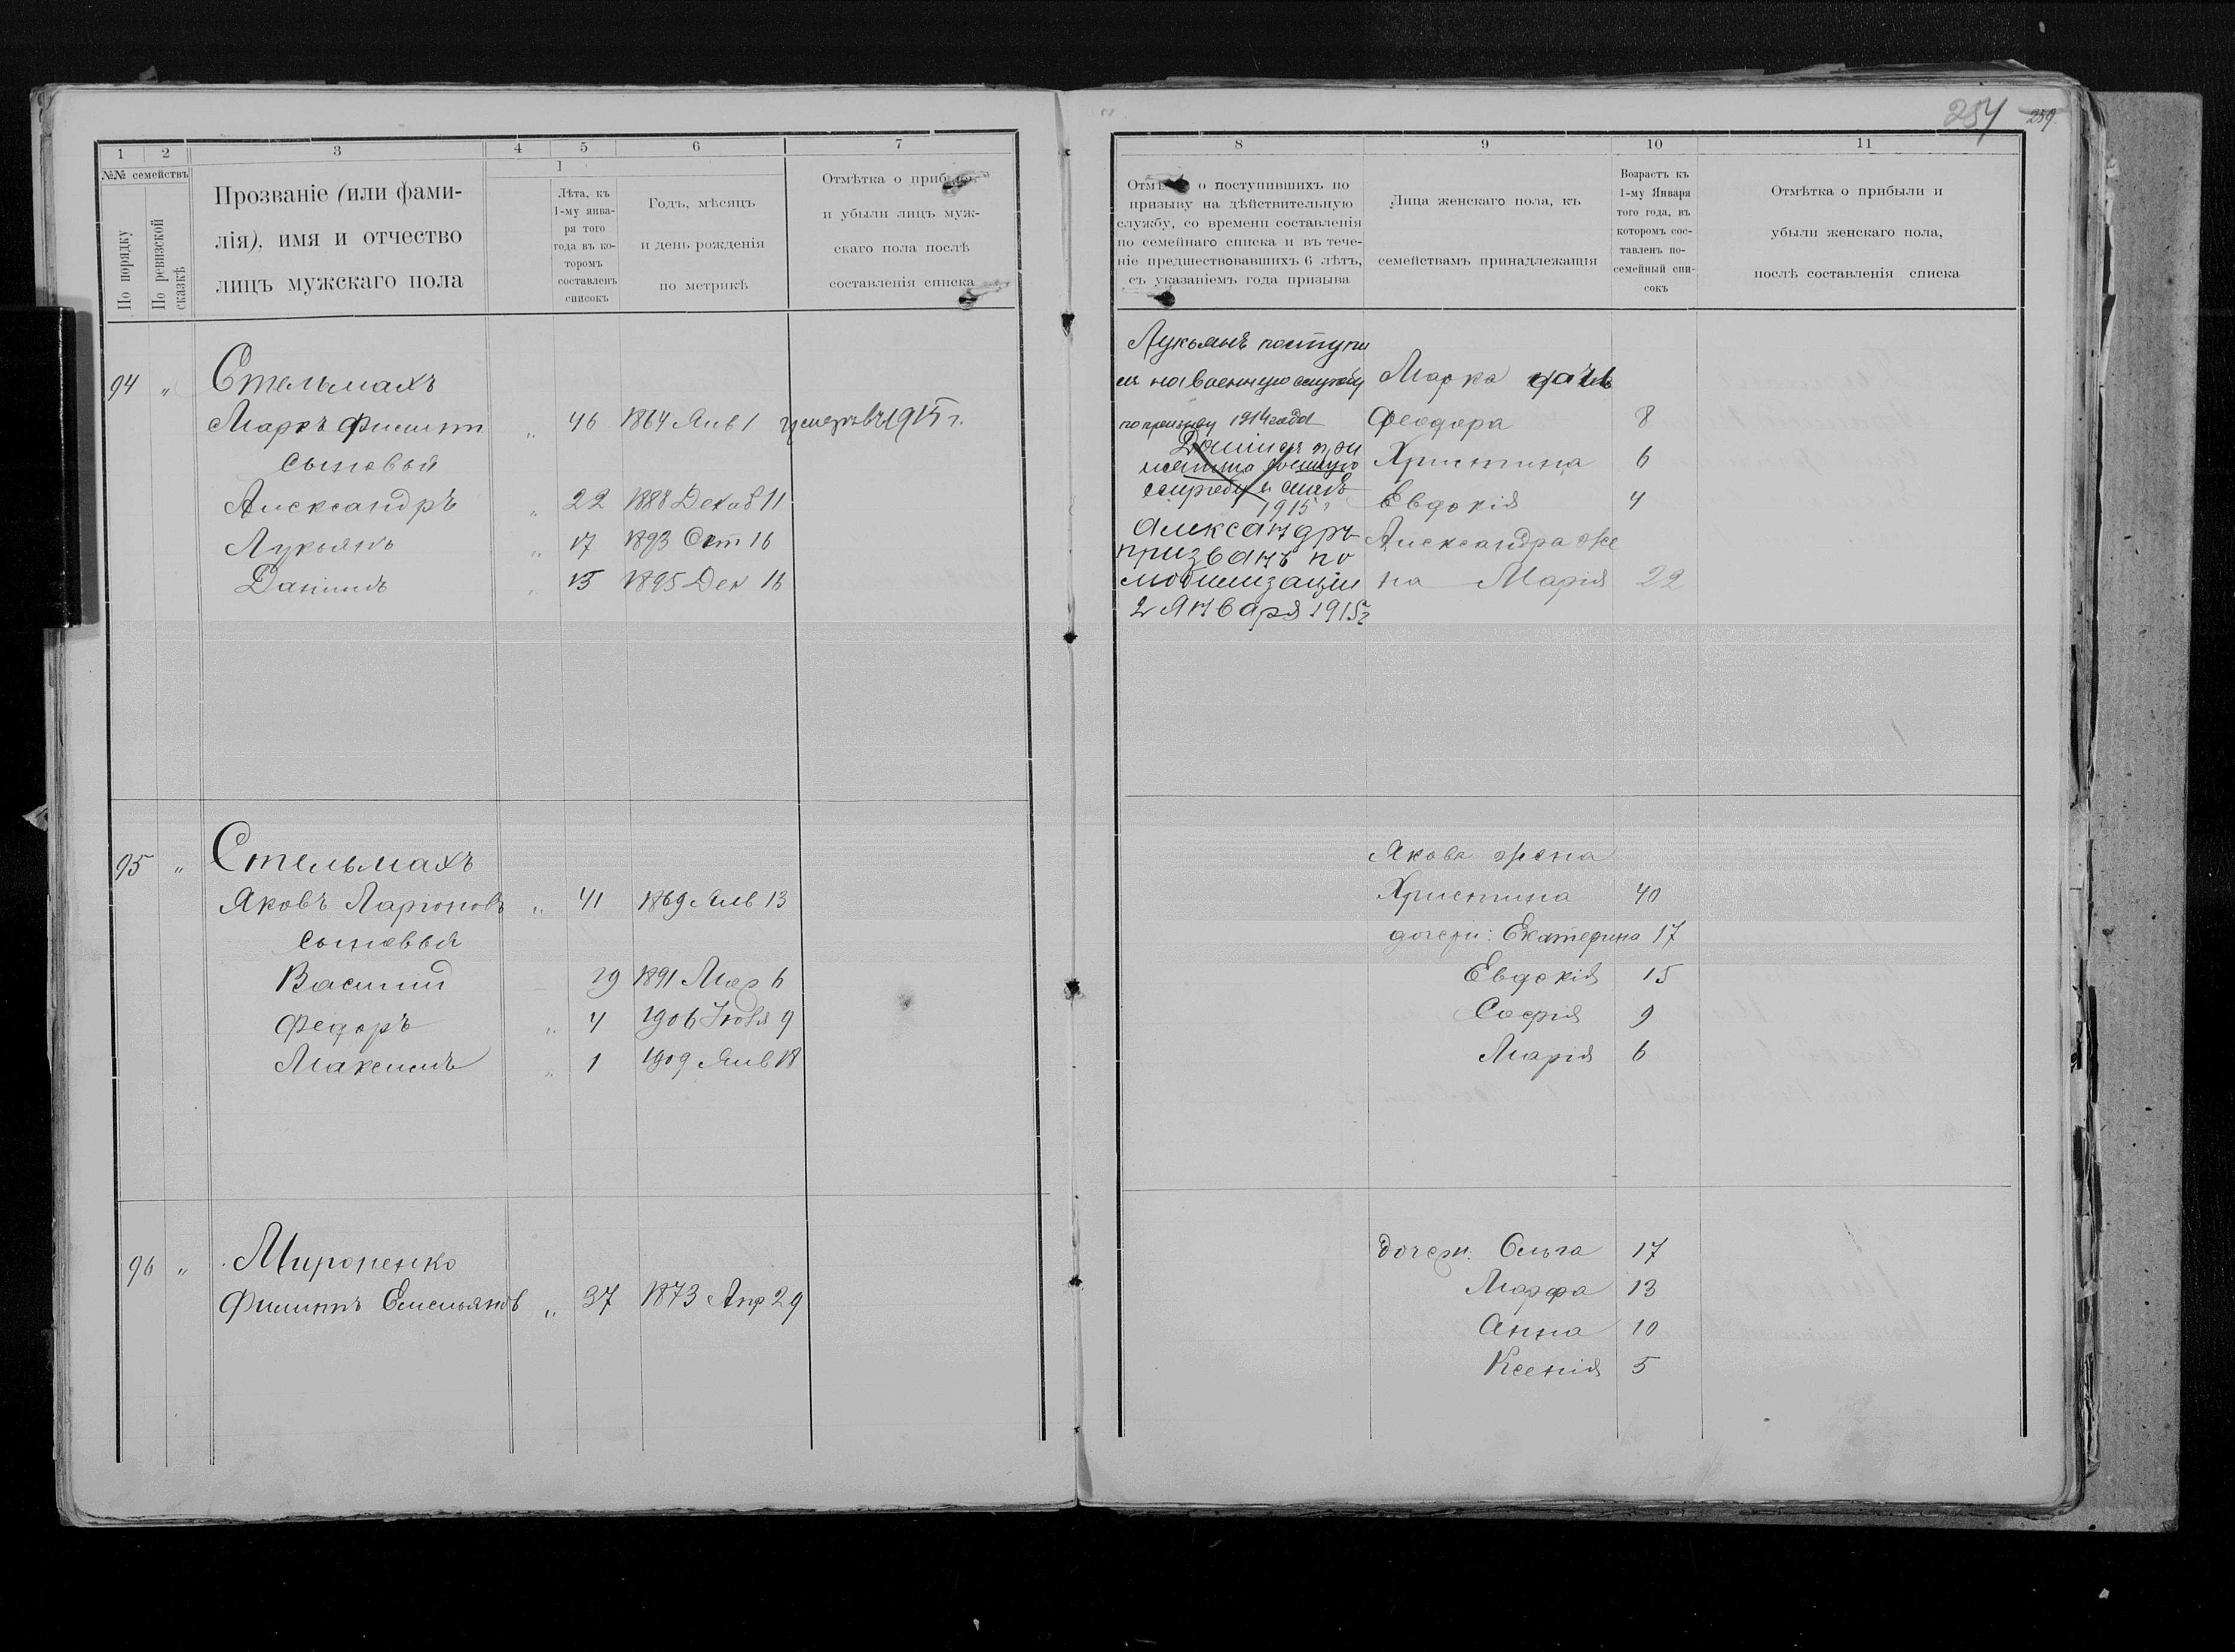 254 259
1 2 3 4 5 6 7
№№ семействъ
По порядку
По ревизской сказкѣ
Прозваніе (или фами-
лія), имя и отчество
лицъ мужскаго пола
1
Лѣта, къ
1-му янва-
ря того
года въ ко-
торомъ
составленъ
списокъ
Годъ, мѣсяцъ
и день рожденія
по метрикѣ
Отмѣтка о прибыли
и убыли лицъ муж-
скаго пола послѣ
составленія списка
94 " Стельмахъ
Маркъ Филипп " 46 1864 Янв 1 умеръ въ 1915 г.
сыновья
Александръ " 22 1888 Декаб 11
Лукьянъ " 17 1893 Окт 16
Даніилъ " 15 1895 Дек 16
95 " Стельмахъ
Яковъ Ларіоновъ " 41 1869 Янв 13
сыновья
Василій 19 1891 Мар 6
Федоръ " 4 1906 9
Максимъ " 1 1909 Янв 18
96 " Мироненко
Филиппъ Емельяновъ " 37 1873 Апр 29
8 9 10 11
Отмѣтка о поступившихъ по
призыву на дѣйствительную
службу, со времени составленія
по семейнаго списка и въ тече-
ніе предшествовавшихъ 6 лѣтъ,
съ указаніемъ года призыва
Лица женскаго пола, къ
семействамъ принадлежащія
Возрастъ къ
1-му Января
того года, въ
которомъ сос-
тавленъ по-
семейный спи-
сокъ
Отмѣтка о прибыли и
убыли женскаго пола,
послѣ составленія списка
Лукьянъ поступи
лъ на военную службу
по призыву 1914 года
Даніилъ при
нятъ на военную
службу
1915 г
Александръ
призванъ по
мобилизаціи
2 Января 1915 г
Марка дочь
Феодора 8
Христина 6
Евдокія 4
Александра же
на Марія 22
Якова жена
Христина 40
дочери: Екатерина 17
Евдокія 15
Софія 9
Марія 6
дочери: Ольга 17
Марфа 13
Анна 10
Ксенія 5